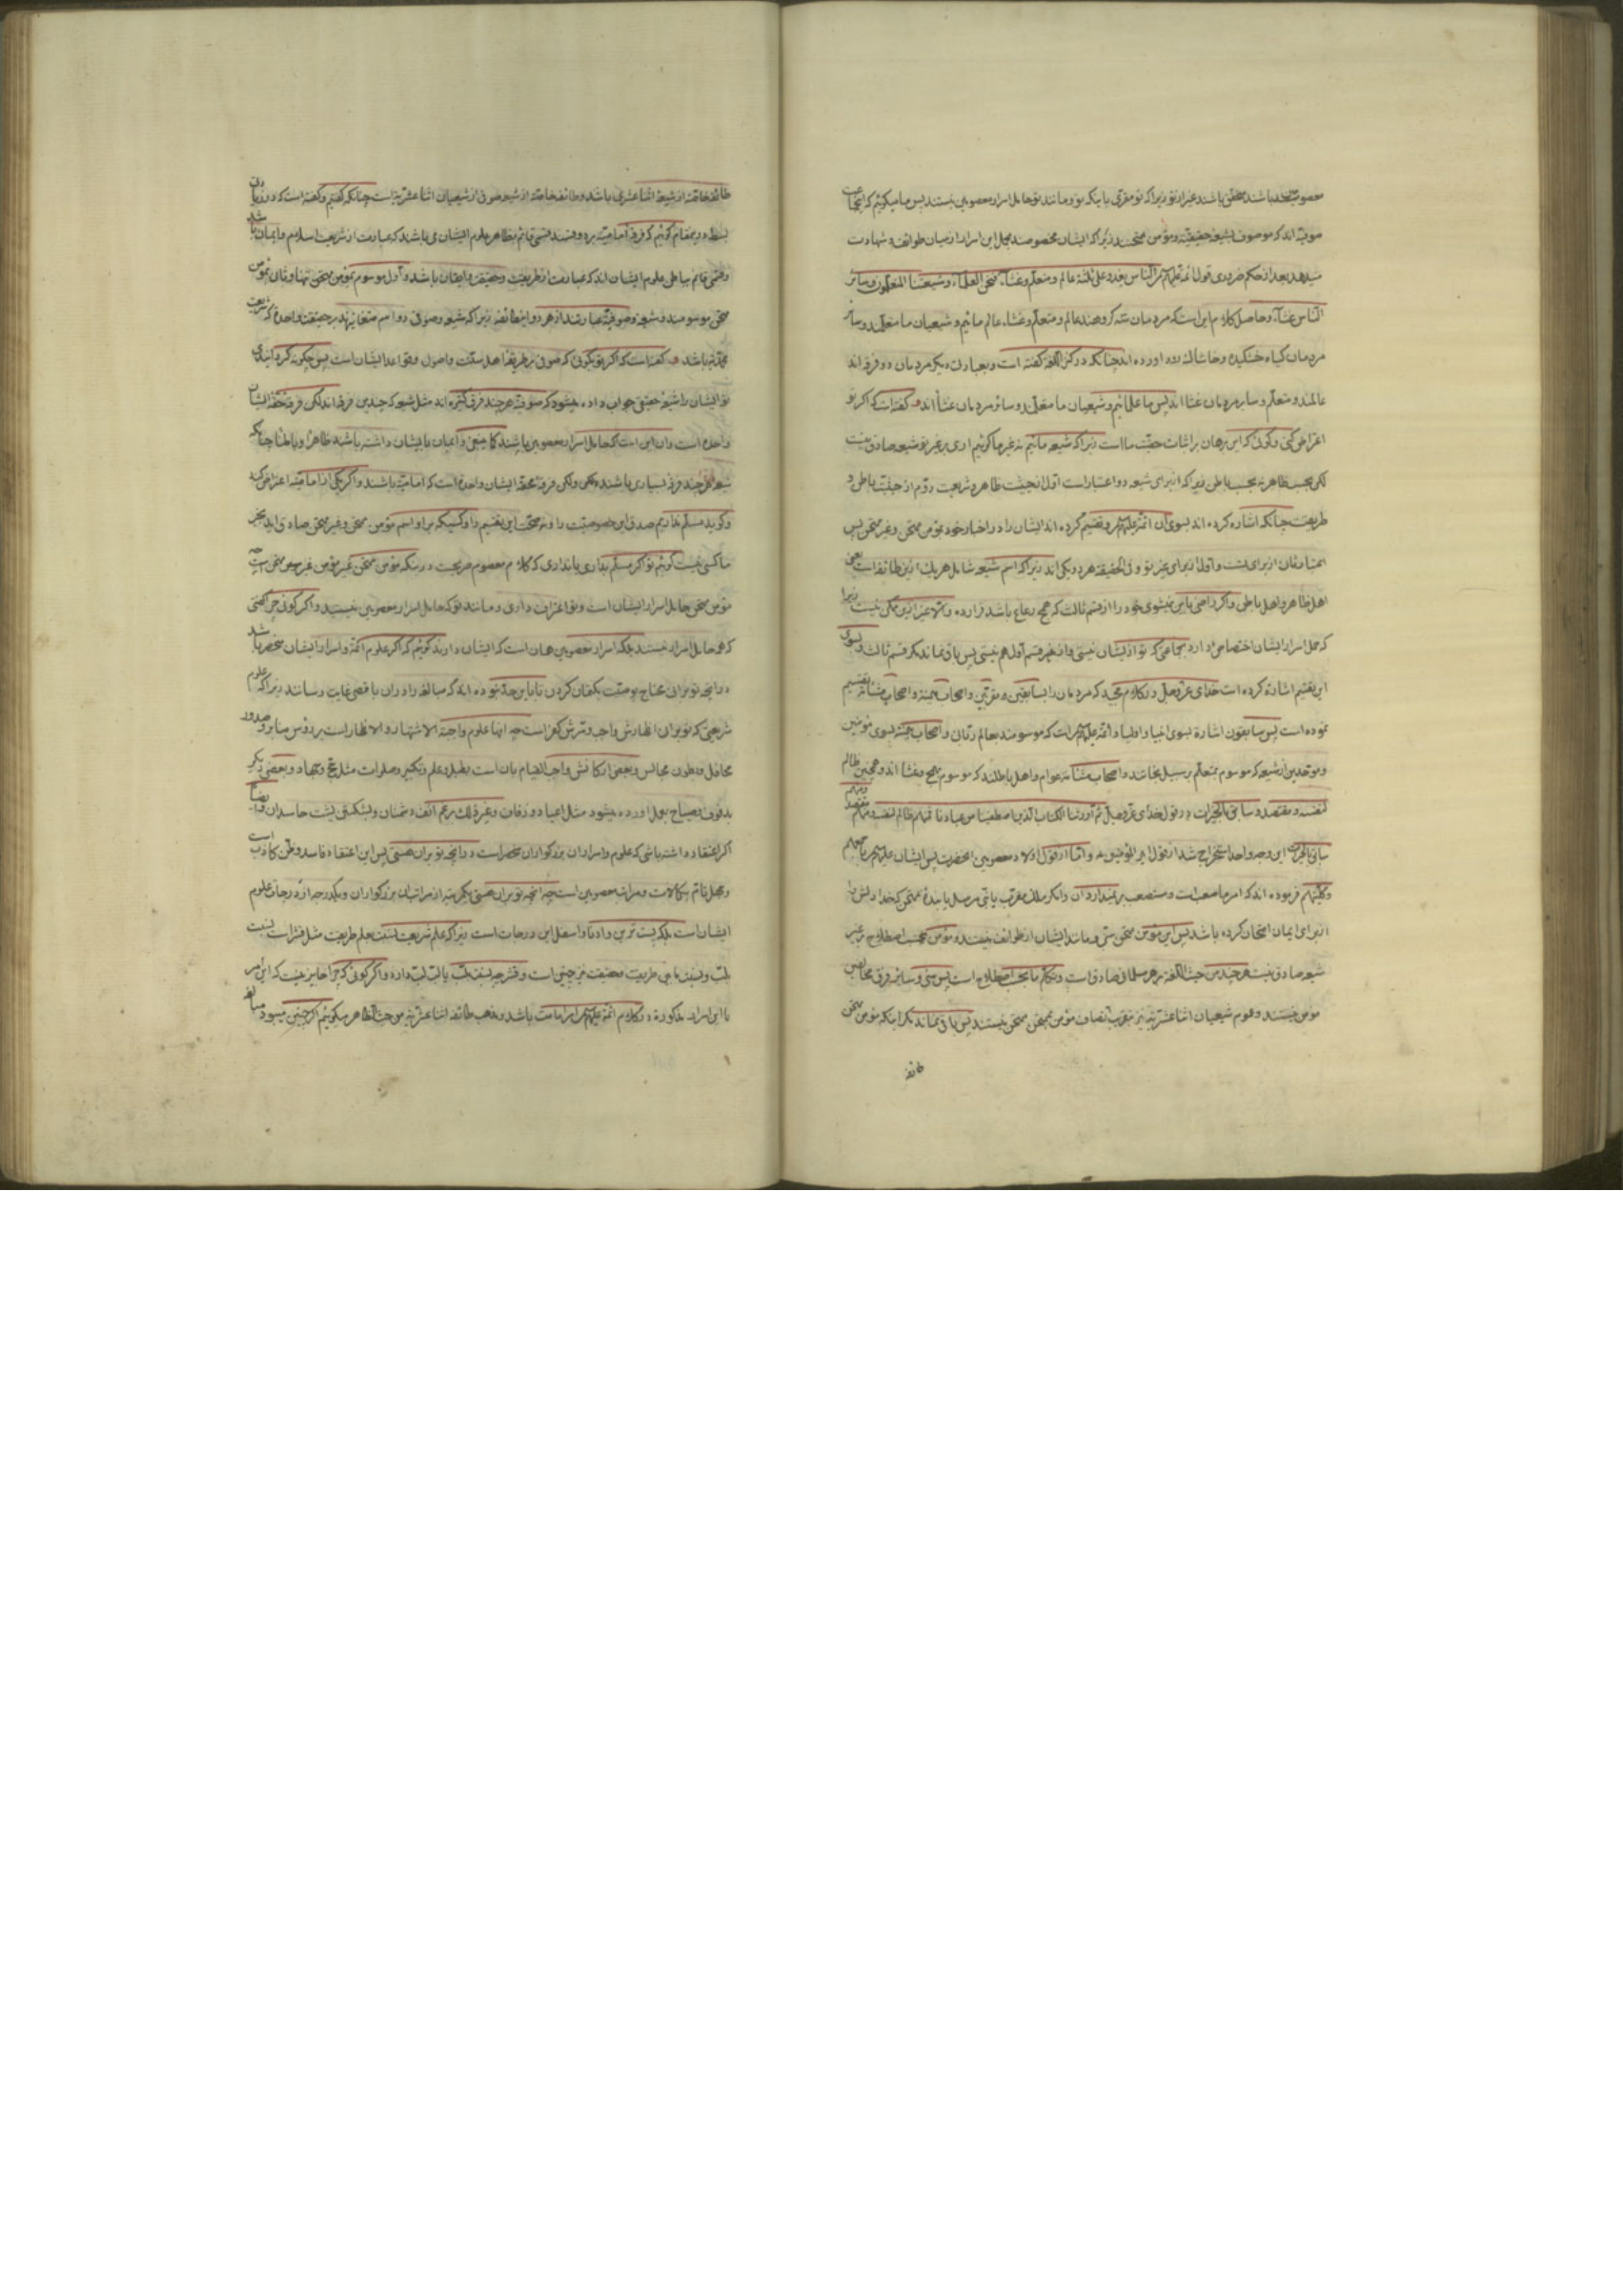 معصومین باشند محقق باشند غیر از تو زیرا که تو مقری باینکه تو و مانند تو حامل اسرار معصومین نیستند پس ما میگوئیم که ایشان جماعت
صوفیه اند که موصوف بشیعه حقیقیه و مؤمن ممتحنند زیرا که ایشان مخصوصند بحمل این اسرار از میان طوائف و شهادت
میدهد بعد از حکم ضروری قول ائمه علیهم السلام الناس یغدو علی ثلثة عالم ومتعلم وغثاء فنحن العلماء وشیعتنا المتعلمون وسائر
الناس غثاء وحاصل کلام این است که مردمان سه گروهند عالم و متعلم و غثاء عالم مائیم و شیعیان ما متعلمند و سائر
مردمان گیاه خشکیده و خاشاک رود آورده اند چنانکه در کنز اللغه گفته است و بعبارت دیگر مردمان دو فرقه اند
عالمند و متعلم و سایر مردمان غثا اند پس ما علمائیم و شیعیان ما متعلمند و سائر مردمان غثا اند و گفته است که اگر تو
اعتراض کنی و گوئی که این برهان بر اثبات حقیت ما است زیرا که شیعه مائیم نه غیر ما گوئیم آری بر غیر تو شیعه صادق نیست
لکن بحسب ظاهر نه بحسب باطن زیرا که از برای شیعه دو اعتبار است اول از حیثیت ظاهر و شریعت دوم از حیثیت باطن و
طریقت چنانکه اشاره کرده اند بسوی آن ائمه علیهم السلام و تقسیم کرده اند ایشان را در اخبار خود بمؤمن ممتحن و غیر ممتحن پس
امتیاز ثانی از برای تست و اول از برای غیر تو و فی الحقیقه هر دو یکی اند زیرا که اسم شیعه شامل هر یک ازین طائفه است یعنی
اهل ظاهر و اهل باطن و اگر راضی باین نمیشوی خود را از قسم ثالث که همج رعاع باشد قرار ده والا غیر ازین ممکن نیست زیرا
که حمل اسرار ایشان اختصاصی دارد بجماعتی که تو از ایشان نیستی و از قسم اول هم نیستی پس باقی نماند مگر قسم ثالث و بسوی
این تقسیم اشاره کرده است خدای عز وجل در کلام مجید که مردمان را بسابقین و مقربین و اصحاب میمنه و اصحاب مشئمه تقسیم
نموده است پس سابقون اشاره بسوی انبیا و اولیا و ائمه علیهم السلام است که موسومند بعالم ربانی و اصحاب میمنه بسوی مؤمنین
و موحدین از شیعه که موسوم بمتعلم بر سبیل نجاتند و اصحاب مشئمه عوام و اهل باطلند که موسوم بهمج و غثا اند و همچنین ظالم
لنفسه و مقتصد و سابق بالخیرات در قول خدای عز وجل ثم اورثنا الکتاب الذین اصطفینا من عبادنا فمنهم ظالم لنفسه ومنهم مقتصد ومنهم
سابق بالخیرات این وجه واحد استخراج شد از قول امیر المؤمنین ع و اما از قول اولاد معصومین آنحضرت پس ایشان علیهم السلام باجمعهم
وکلیتهم فرموده اند که امر ما صعب است و مستصعب بر نمیدارد آن را مگر ملک مقرب یا نبی مرسل یا بنده ممتحن که خدا دلش را
از برای ایمان امتحان کرده باشد پس این مؤمن ممتحن سنی و مانند ایشان از طوائف نیستند و مؤمن بحسب اصطلاح بر غیر
شیعه صادق نیست هر چند من حیث اللغه بر هر مسلمانی صادق است و تکلم ما بحسب اصطلاح است پس سنی و سائر فرق مخالفین
مؤمن نیستند و عموم شیعیان اثنا عشریه نیز بعدم اتصاف مؤمن بممتحن ممتحن نیستند پس باقی نماند مگر اینکه مؤمن ممتحن
طائفه
طائفه خاصه از شیعه اثنا عشری باشد و طائفه خاصه از شیعه صوفی از شیعیان اثنا عشریه است چنانکه گفتیم و گفته است که در زیادتی
بسط در یمقام گوئیم که فرقه امامیه بر دو قسمند قسمی قائم بظاهر علوم ایشان می باشند که عبارت از شریعت و اسلام و ایمان باشد
و قسمی قائم بباطن علوم ایشان اند که عبارت از طریقت و حقیقت و ایقان باشد و اول موسوم بمؤمن غیر ممتحن تنها و ثانی بمؤمن
ممتحن موسومند و شیعه و صوفیه عبارتند از هر دو این طائفه زیرا که شیعه و صوفی دو اسم متغایرند بر حقیقت واحده که شریعت
محمدیه باشد و گفته است که اگر تو بگوئی که صوفی بر طریقه اهل سنت و اصول و قواعد ایشان است پس چگونه گردانیدی
تو ایشان را شیعه حقیقی جواب داده میشود که صوفیه هر چند فرق کثیره اند مثل شیعه که چندین فرقه اند لکن فرقه حقه ایشان
واحده است و آن این است که حامل اسرار معصومین باشند کما ینبغی و ایمان بایشان داشته باشند ظاهرا و باطنا چنانکه
شیعه هر چند فرق بسیاری باشند ولکن فرقه محقه ایشان واحده است که امامیه باشند و اگر یکی از امامیه اعتراض کند
و گوید مسلم نداریم صدق این خصوصیت را و نه صحت این تقسیم را و کسیکه بر او اسم مؤمن ممتحن و غیر ممتحن صادق آید بجز
ما کسی نیست گوئیم تو اگر مسلم بداری یا نداری که کلام معصوم صریحست در اینکه مؤمن ممتحن غیر مؤمن غیر ممتحن است چه
مؤمن ممتحن حامل اسرار ایشان است و تو اعتراف داری و مانند تو که حامل اسرار معصومین نیستید و اگر گوئی چرا گفتی
که ما حامل اسرار نیستند بلکه اسرار معصومین همان است که ایشان دارند گوئیم که اگر علوم ائمه و اسرار ایشان منحصر باشد
در آنچه تو بر آنی محتاج بوصیت بکتمان کردن تا باین حد نبوده اند که مبالغه را در آن باقصی غایت رسانند زیرا که علوم
شریعتی که تو بر آن اظهارش واجب و ترکش کفر است چه آنها علوم واجبة الاشتهار و الاظهار است بر رؤس منابر و صدور
محافل و بطون مجالس و بعضی ارکانش واجب القیام بآن است بطبل و علم و تکبیر و صلوات مثل حج و جهاد و بعضی دیگر
بدفوف بصیاح بعمل آورده میشود مثل اعیاد و زفاف و غیر ذلک برغم انف دشمنان و بشکستن پشت حاسدان و ایضا
اگر اعتقاد داشته باشی که علوم و اسرار آن بزرگواران منحصر است در آنچه تو بر آن هستی پس این اعتقاد فاسد و ظن کاذب است
و جهل تام بکمالات و مراتب معصومین است چه آنچه تو بر آن هستی یکمرتبه از مراتب آن بزرگواران و یکدرجه از درجات علوم
ایشان است بلکه پست ترین و ادنا و اسفل این درجات است زیرا که علم شریعت بنسبت بعلم طریقت مثل قشر است بنسبت
بلب و نسبت ما بین طریقت و حقیقت نیز چنین است و قشر چه نسبت بلب یا لب لب دارد و اگر گوئی که چرا جایز نیست که این امر
با این اسرار مذکوره در کلام ائمه علیهم السلام امر امامت باشد و مذهب طائفه اثنا عشریه من حیث الظاهر میگوئیم اگر چنین میبود مبالغه